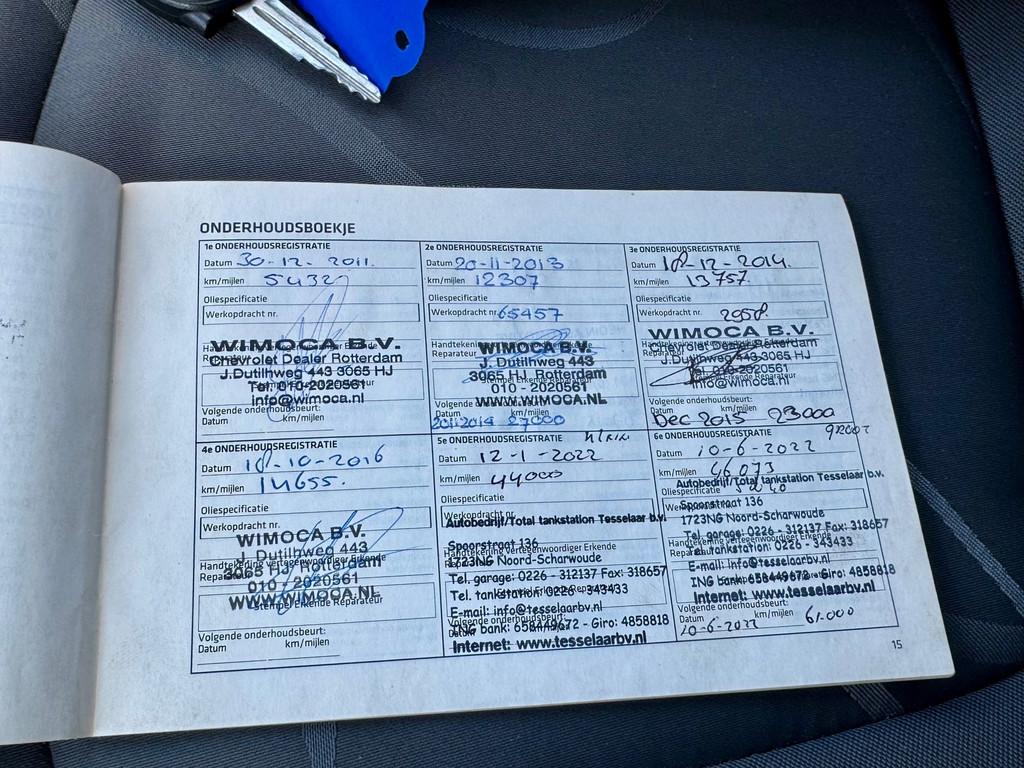 ONDERHOUDSBOEKJE
1e ONDERHOUDSREGISTRATIE
Datum 30-12-2011.
km/mijlen 5432
Oliespecificatie
Werkopdracht nr.
WIMOCA B.V.
Chevrolet Dealer Rotterdam
J.Dutilhweg 443 3065 HJ
Tel. 010-2020561
info@wimoca.nl
Volgende onderhoudsbeurt:
Datum km/mijlen
2e ONDERHOUDSREGISTRATIE
Datum 20-11-2013
km/mijlen 12307
Oliespecificatie
Werkopdracht nr. 65457
Reparateur
WIMOCA B.V.
J. Dutilhweg 443
3065 HJ Rotterdam
010 - 2020561
WWW.WIMOCA.NL
Volgende
Datum km/mijlen
27000
3e ONDERHOUDSREGISTRATIE
Datum 18-12-2014.
km/mijlen 13757.
Oliespecificatie
Werkopdracht nr. 2958
WIMOCA B.V.
Chevrolet Dealer Rotterdam
J.Dutilhweg 443 3065 HJ
Tel. 010-2020561
info@wimoca.nl
Volgende onderhoudsbeurt:
Datum km/mijlen
Dec 2015 23000
4e ONDERHOUDSREGISTRATIE
Datum 18-10-2016
km/mijlen 14655.
Oliespecificatie
Werkopdracht nr.
WIMOCA B.V.
J. Dutilhweg 443
Handtekening vertegenwoordiger Erkende
Reparateur
3065 HJ Rotterdam
010 / 2020561
WWW.WIMOCA.NL
Stempel Erkende Reparateur
Volgende onderhoudsbeurt:
Datum km/mijlen
5e ONDERHOUDSREGISTRATIE
Datum 12-1-2022
km/mijlen 44000
Oliespecificatie
Werkopdracht nr.
Autobedrijf/Total tankstation Tesselaar b.v.
Spoorstraat 136
Handtekening vertegenwoordiger Erkende
1723NG Noord-Scharwoude
Tel. garage: 0226 - 312137 Fax: 318657
Tel. tankstation: 0226 - 343433
E-mail: info@tesselaarbv.nl
ING bank: 658449672 - Giro: 4858818
Internet: www.tesselaarbv.nl
6e ONDERHOUDSREGISTRATIE
Datum 10-6-2022
km/mijlen 46073
Autobedrijf/Total tankstation Tesselaar b.v.
Oliespecificatie
Spoorstraat 136
1723NG Noord-Scharwoude
Tel. garage: 0226 - 312137 Fax: 318657
Handtekening vertegenwoordiger Erkende
Reparateur
Tel. tankstation: 0226 - 343433
E-mail: info@tesselaarbv.nl
ING bank: 658449672 - Giro: 4858818
Internet: www.tesselaarbv.nl
Volgende onderhoudsbeurt:
Datum km/mijlen
61.000
15